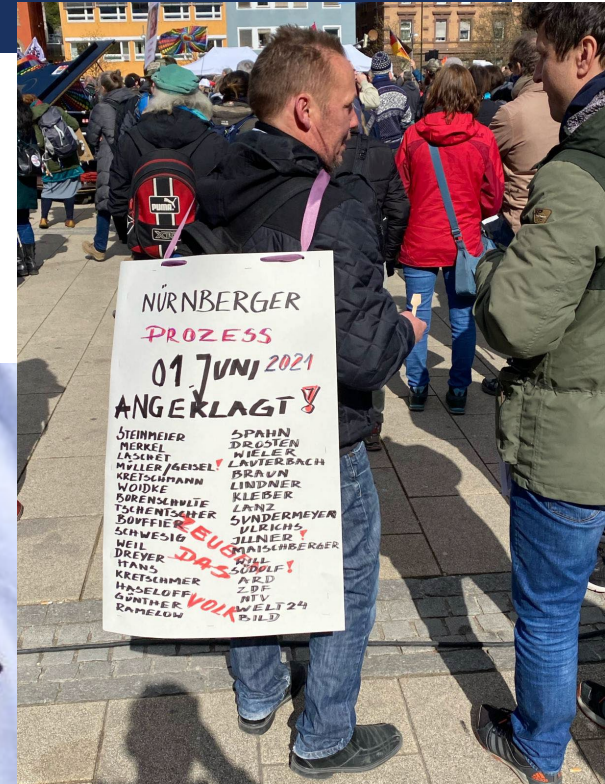 NÜRNBERGER
PROZESS
01. JUNI 2021
ANGEKLAGT !
STEINMEIER
MERKEL
LASCHET
MÜLLER/GEISEL!
KRETSCHMANN
WOIDKE
BORENSCHULTE
TSCHENTSCHER
BOUFFIER
SCHWESIG
WEIL
DREYER
HANS
KRETSCHMER
HASELOFF
GÜNTHER
RAMELOW
SPAHN
DROSTEN
WIELER
LAUTERBACH
BRAUN
LINDNER
KLEBER
LANZ
SUNDERMEYER
ULRICHS
ILLNER!
MAISCHBERGER
WILL
SÜDOLF!
ARD
ZDF
NTV
WELT24
BILD
ZEUGE
DAS
VOLK
PUMA